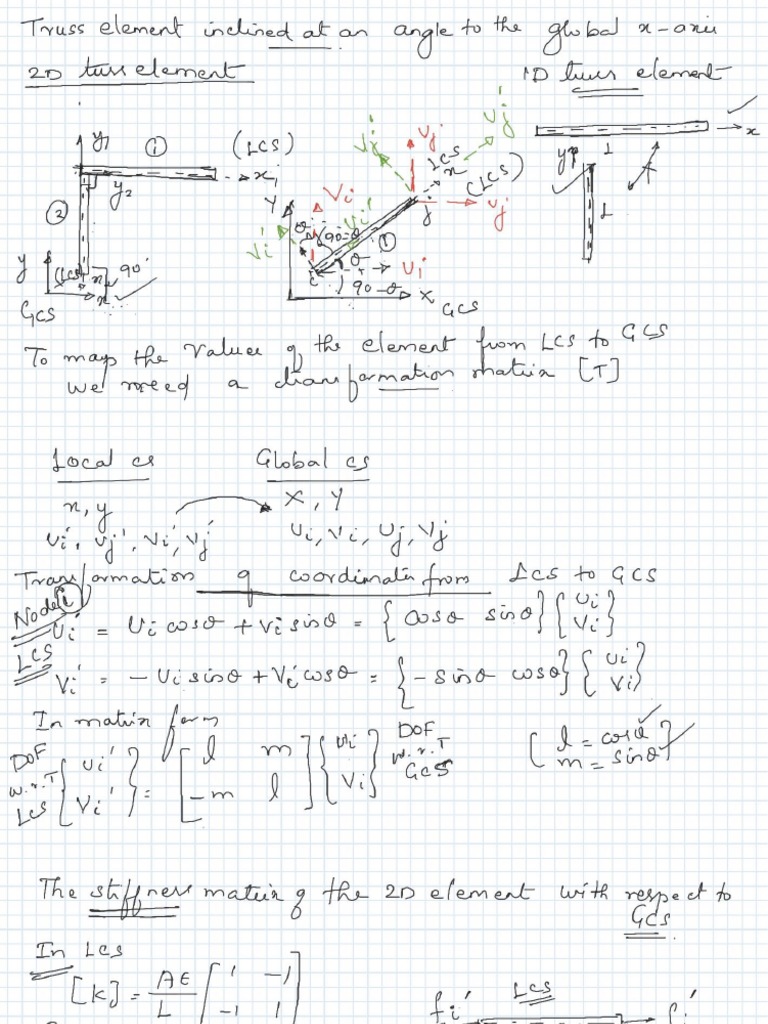 Truss element inclined at an angle to the global x-axis
2D truss element
1D truss element
y1 ① (LCS) x1
y2
②
y (LCS) x 90°
x
GCS
Y Vi' Vi Vi' Vj' Vj Uj'
θ (90-θ) ①
LCS x (LCS)
j Uj
i θ Ui
90-θ
X GCS
x
y L
L
To map the values of the element from LCS to GCS
we need a transformation matrix [T]
Local cs Global cs
x, y X, Y
Ui', Uj', Vi', Vj' Ui, Vi, Uj, Vj
Transformation of coordinates from LCS to GCS
Node i
Ui' = Ui cosθ + Vi sinθ = { cosθ sinθ} {Ui Vi}
LCS
Vi' = - Ui sinθ + Vi cosθ = {- sinθ cosθ} {Ui Vi}
In matrix form
DOF w.r.T LCS {Ui' Vi'} = [l m -m l] {Ui Vi} DOF w.r.T GCS [l = cosθ m = sinθ]
The stiffness matrix of the 2D element with respect to
GCS
In LCS
[K] = AE/L [1 -1 -1 1]
LCS
fi'